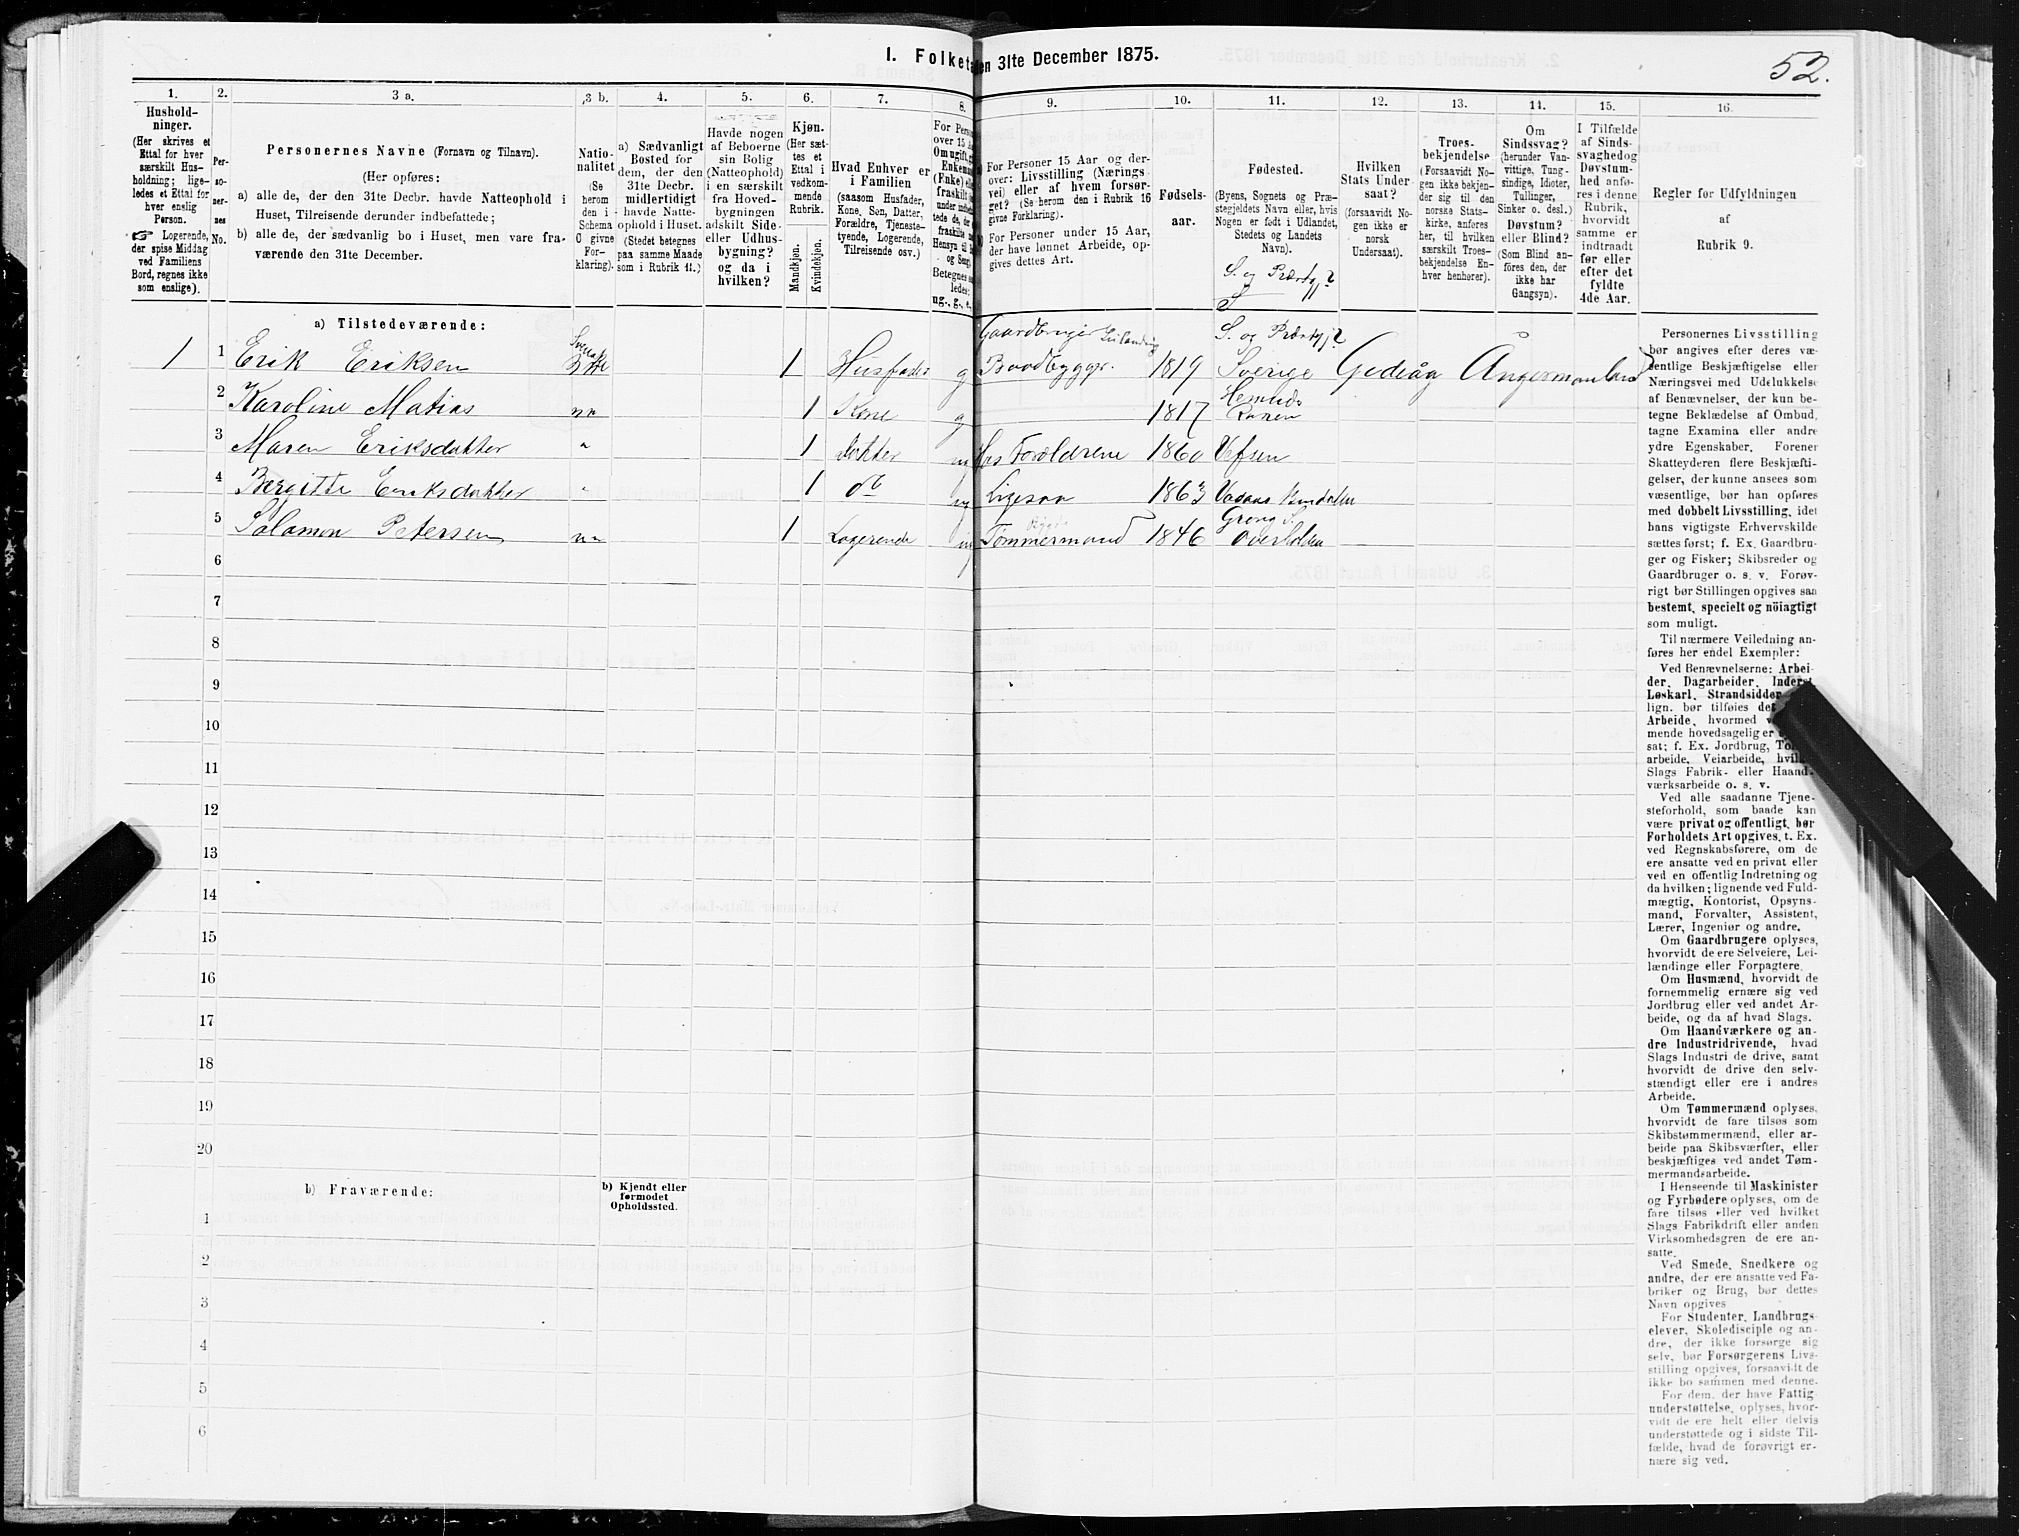 I. Folketæ en 31te December 1875.
52.
1. 2. 3 a. 3 b. 4. 5. 6. 7. 8. 9. 10. 11. 12. 13. 14. 15. 16.
Hushold-
ninger.
(Her skrives et
Ettal for hver
særskilt Hus-
holdning; lige-
ledes et Ettal for
hver enslig
Person.
☞ Logerende,
der spise Middag
ved Familiens
Bord, regnes ikke
som enslige).
Per-
so-
ner-
nes
No.
Personernes Navne (Fornavn og Tilnavn).
(Her opføres:
a) alle de, der den 31te Decbr. havde Natteophold i
Huset, Tilreisende derunder indbefattede;
b) alle de, der sædvanlig bo i Huset, men vare fra-
værende den 31te December.
Natio-
nalitet
(Se
herom
den i
Schema
C givne
For-
klaring).
a) Sædvanligt
Bosted for
dem, der den
31te Decbr.
midlertidigt
havde Natte-
ophold i Huset.
(Stedet betegnes
paa samme Maade
som i Rubrik 11.)
Havde nogen
af Beboerne
sin Bolig
(Natteophold)
i en særskilt
fra Hoved-
bygningen
adskilt Side-
eller Udhus-
bygning?
og da i
hvilken?
Kjøn.
(Her sæt-
tes et
Ettal i
vedkom-
mende
Rubrik.
Mandkjøn.
Kvindekjøn.
Hvad Enhver er
i Familien
(saasom Husfader,
Kone, Søn, Datter,
Forældre, Tjeneste-
tyende, Logerende,
Tilreisende osv.)
For Perso
over 15 A
Om ugift, g
Enkema
(Enke) el
fraskilt
ug., g., e.,
For Personer 15 Aar og der-
over: Livsstilling (Nærings-
vei) eller af hvem forsør-
get? (Se herom den i Rubrik 16
givne Forklaring).
For Personer under 15 Aar,
der have lønnet Arbeide, op-
gives dettes Art.
Fødsels-
aar.
Fødested.
(Byens, Sognets og Præ-
stegjeldets Navn eller, hvis
Nogen er født i Udlandet,
Stedets og Landets
Navn).
S. og Præstgj?
S
Hvilken
Stats Under-
saat?
(forsaavidt No-
gen ikke er
norsk
Undersaat).
Troes-
bekjendelse
(Forsaavidt No-
gen ikke bekjen-
der sig til den
norske Stats-
kirke, anføres
her, til hvilken
særskilt Troes-
bekjendelse En-
hver henhører).
Om
Sindssvag?
(herunder Van-
vittige, Tung-
sindige, Idioter,
Tullinger,
Sinker o. desl.)
Døvstum?
eller Blind?
(Som Blind an-
føres den, der
ikke har
Gangsyn).
I Tilfælde
af Sinds-
svaghed og
Døvstum-
hed anfø-
res i denne
Rubrik,
hvorvidt
samme er
indtraadt
før eller
efter det
fyldte
4de Aar.
Regler før Udfyldningen
af
Rubrik 9.
a) Tilstedeværende:
1 1 Erik Eriksen Svensk 1 Husfader g Gaardbruger Leilænding Baadbygger. 1819 S. og Præstgj? Sverige Gedeåg Ångermanland
2 Karoline Matias nn 1 Kone g 1817 Hemnæs Ranen
3 Maren Eriksdatter " 1 datter ug Hos Forældrene 1860 Vefsen
4 Bergitte Eriksdatter " 1 do ug Ligesaa 1863
5 Salamon Petersen nn 1 Logerende ug Tømmermand 1846 Grong S. Overhalen
6
7
8
9
10
11
12
13
14
15
16
17
18
19
20
b) Fraværende:
b) Kjendt eller
førmodet
Opholdssted.
1
2
3
4
5
6
Personernes Livsstilling
bør angives efter deres væ-
sentlige Beskjæftigelse eller
Næringsvei med Udelukkelse
af Benævnelser, der kun be-
tegne Beklædelse af Ombud,
tagne Examina eller andre
ydre Egenskaber. Forener
Skatteyderen flere Beskjæfti-
gelser, der kunne ansees som
væsentlige, bør han opføres
med dobbelt Livsstilling, idet
hans vigtigste Erhvervskilde
sættes først; f. Ex. Gaardbru-
ger og Fisker; Skibsreder og
Gaardbruger o. s. v. Forøv-
rigt bør Stillingen opgives saa
bestemt, specielt og nöiagtigt
som muligt.
Til nærmere Veiledning an-
føres her endel Exempler:
Ved Benævnelserne: Arbei-
der, Dagarbeider, Inderst,
Løskarl, Strandsidder
lign. bør tilføies de
Arbeide, hvormed
mende hovedsagelig er
sat; f. Ex. Jordbrug,
arbeide, Veiarbeide, hvilk
Slags Fabrik- eller Haand-
værksarbeide o. s. v.
Ved alle saadanne Tjene-
steforhold, som baade kan
være privat og offentligt, bør
Forholdets Art opgives, t. Ex.
ved Regnskabsførere, om de
ere ansatte ved en privat eller
ved en offentlig Indretning og
da hvilken; lignende ved Fuld-
mægtig, Kontorist, Opsyns-
mand, Forvalter, Assistent,
Lærer, Ingeniør og andre.
Om Gaardbrugere oplyses,
hvorvidt de ere Selveiere, Lei-
lændinge eller Forpagtere.
Om Husmænd, hvorvidt de
fornemmelig ernære sig ved
Jordbrug eller ved andet Ar-
beide, og da af hvad Slags.
Om Haandværkere og an-
dre Industridrivende, hvad
Slags Industri de drive, samt
hvorvidt de drive den selv-
stændigt eller ere i andres
Arbeide.
Om Tømmermænd oplyses,
hvorvidt de fare tilsøs som
Skibstømmermænd, eller ar-
beide paa Skibsværfter, eller
beskjæftiges ved andet Tøm-
mermandsarbeide.
I Henseende til Maskinister
og Fyrbødere oplyses, om de
fare tilsøs eller ved hvilket
Slags Fabrikdrift eller anden
Virksomhedsgren de ere an-
satte.
Ved Smede, Snedkere og
andre, der ere ansatte ved Fa-
briker og Brug, bør dettes
Navn opgives
For Studenter, Landbrugs-
elever, Skoledisciple og an-
dre, der ikke forsørge sig
selv, bør Forsørgerens Livs-
stilling opgives, forsaavidt de
ikke bo sammen med denne.
For dem, der have Fattig-
understøttelse, oplyses, hvor-
vidt de ere helt eller delvis
understøttede og i sidste Til-
fælde, hvad de forøvrigt er-
nære sig ved.